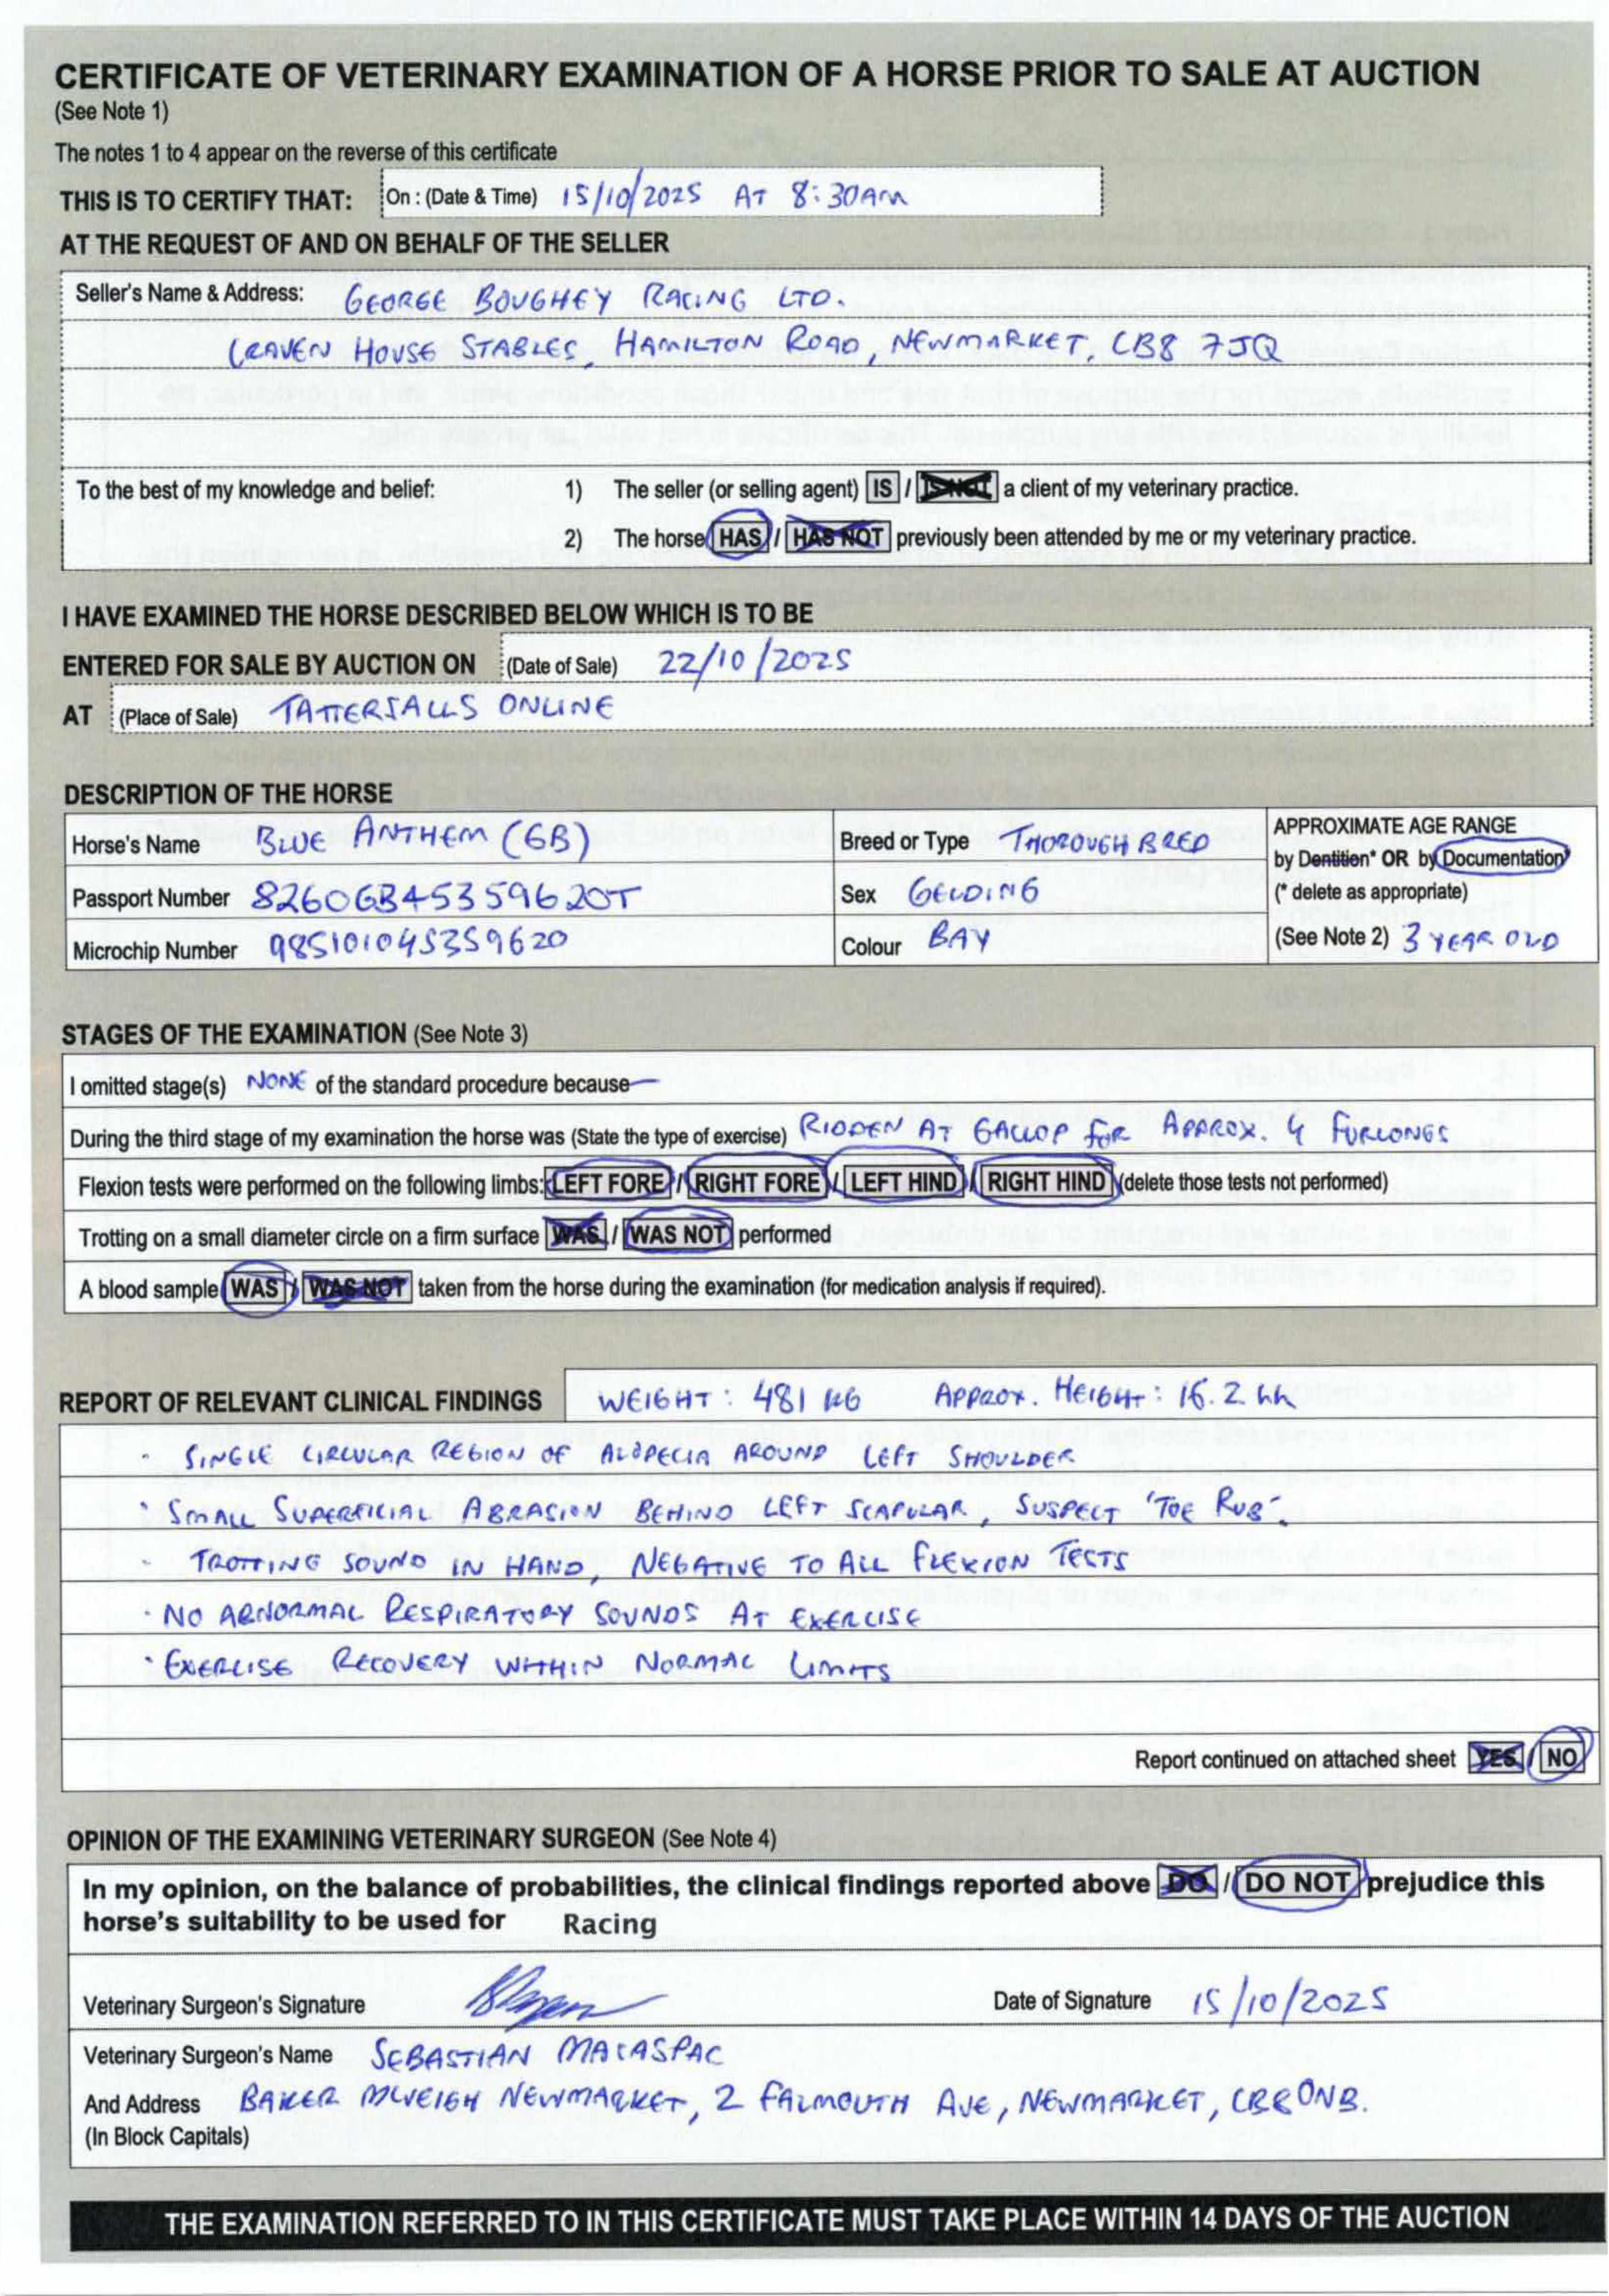 CERTIFICATE OF VETERINARY EXAMINATION OF A HORSE PRIOR TO SALE AT AUCTION
(See Note 1)
The notes 1 to 4 appear on the reverse of this certificate
THIS IS TO CERTIFY THAT: On : (Date & Time) 15/10/2025 AT 8:30AM
AT THE REQUEST OF AND ON BEHALF OF THE SELLER
Seller's Name & Address: GEORGE BOUGHEY RACING LTD.
CRAVEN HOUSE STABLES, HAMILTON ROAD, NEWMARKET, CB8 7JQ
To the best of my knowledge and belief: 1) The seller (or selling agent) IS / IS NOT a client of my veterinary practice.
2) The horse HAS / HAS NOT previously been attended by me or my veterinary practice.
I HAVE EXAMINED THE HORSE DESCRIBED BELOW WHICH IS TO BE
ENTERED FOR SALE BY AUCTION ON (Date of Sale) 22/10/2025
AT (Place of Sale) TATTERSALLS ONLINE
DESCRIPTION OF THE HORSE
Horse's Name BLUE ANTHEM (GB) Breed or Type THOROUGHBRED APPROXIMATE AGE RANGE
by Dentition* OR by Documentation*
Passport Number 826OGB45359620T Sex GELDING (* delete as appropriate)
Microchip Number 985101045359620 Colour BAY (See Note 2) 3 YEAR OLD
STAGES OF THE EXAMINATION (See Note 3)
I omitted stage(s) NONE of the standard procedure because —
During the third stage of my examination the horse was (State the type of exercise) RIDDEN AT GALLOP FOR APPROX. 4 FURLONGS
Flexion tests were performed on the following limbs: LEFT FORE / RIGHT FORE / LEFT HIND / RIGHT HIND (delete those tests not performed)
Trotting on a small diameter circle on a firm surface WAS / WAS NOT performed
A blood sample WAS / WAS NOT taken from the horse during the examination (for medication analysis if required).
REPORT OF RELEVANT CLINICAL FINDINGS WEIGHT : 481 KG APPROX. HEIGHT : 16.2 hh
· SINGLE CIRCULAR REGION OF ALOPECIA AROUND LEFT SHOULDER
· SMALL SUPERFICIAL ABRASION BEHIND LEFT SCAPULAR, SUSPECT 'TOE RUB'.
· TROTTING SOUND IN HAND, NEGATIVE TO ALL FLEXION TESTS
· NO ABNORMAL RESPIRATORY SOUNDS AT EXERCISE
· EXERCISE RECOVERY WITHIN NORMAL LIMITS
Report continued on attached sheet YES / NO
OPINION OF THE EXAMINING VETERINARY SURGEON (See Note 4)
In my opinion, on the balance of probabilities, the clinical findings reported above DO / DO NOT prejudice this
horse's suitability to be used for Racing
Veterinary Surgeon's Signature Date of Signature 15/10/2025
Veterinary Surgeon's Name SEBASTIAN MACASPAC
And Address BAKER MCVEIGH NEWMARKET, 2 FALMOUTH AVE, NEWMARKET, CB8 0NB.
(In Block Capitals)
THE EXAMINATION REFERRED TO IN THIS CERTIFICATE MUST TAKE PLACE WITHIN 14 DAYS OF THE AUCTION